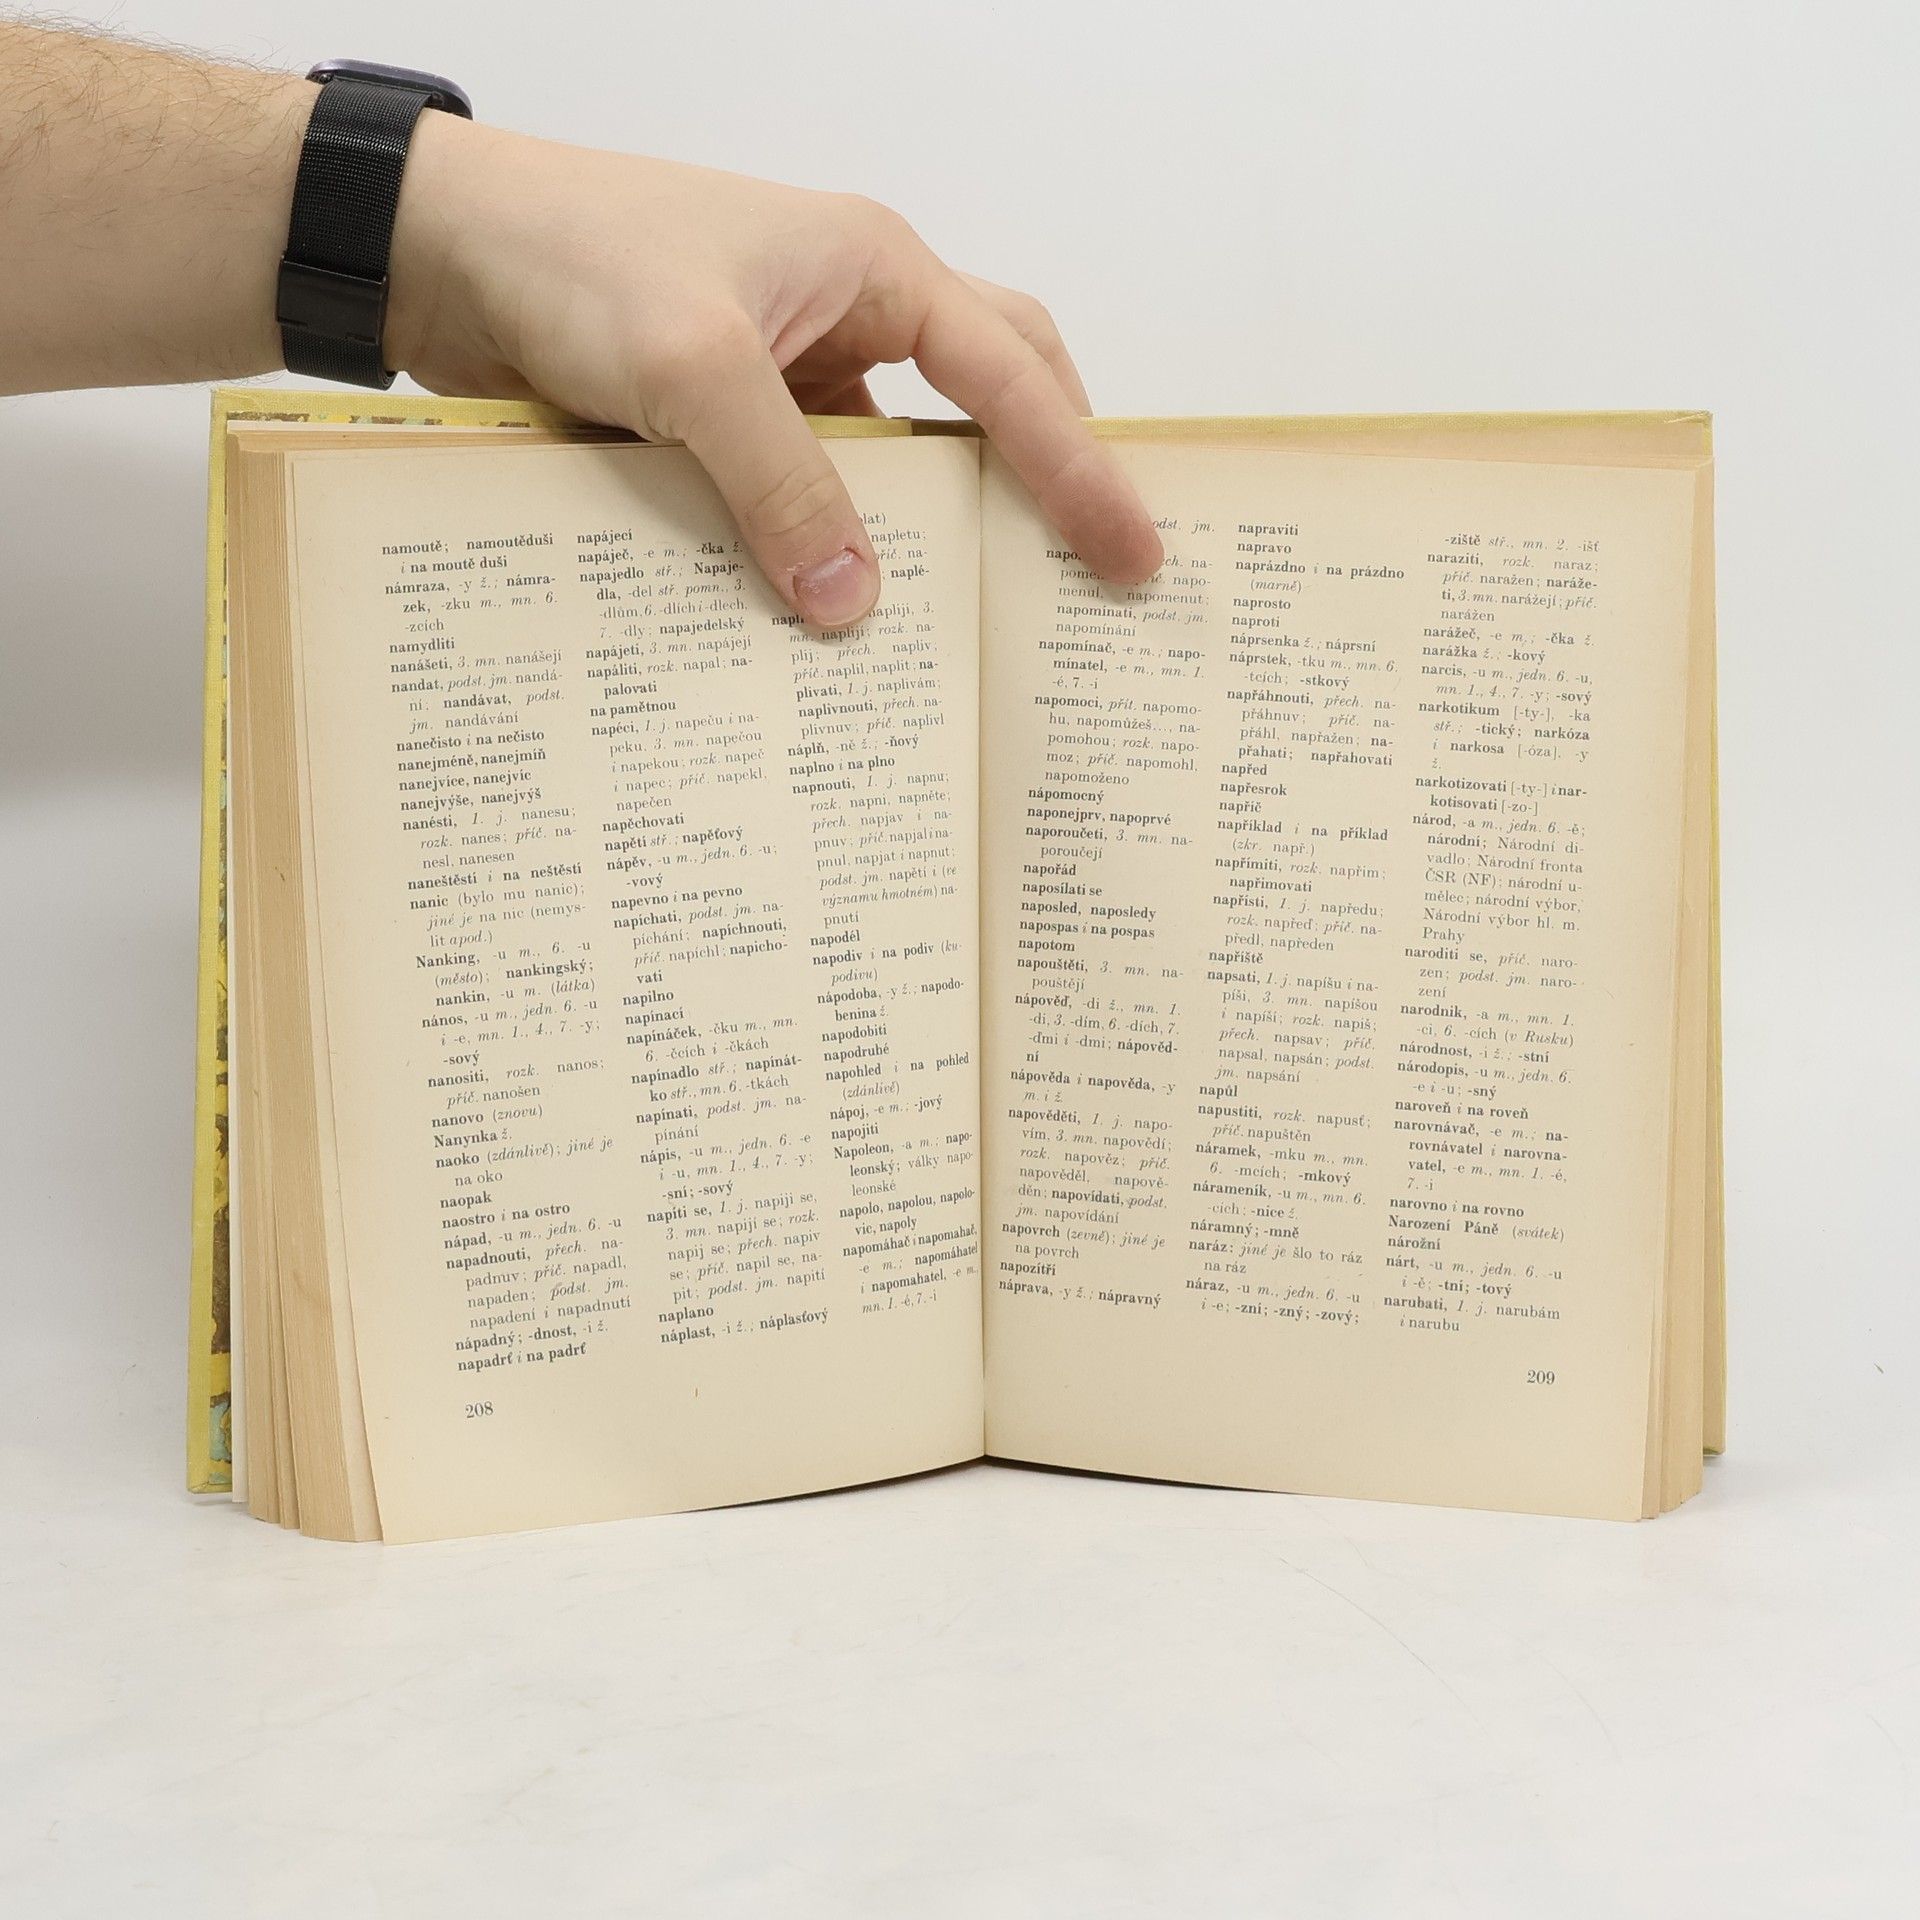 namoutě; namoutěduši
i na moutě duši
námraza, -y ž.; námra-
zek, -zku m., mn. 6.
-zcích
namydliti
nanášeti, 3. mn. nanášejí
nandat, podst. jm. nandá-
ní; nandávat, podst.
jm. nandávání
nanečisto i na nečisto
nanejméně, nanejmíň
nanejvíce, nanejvíc
nanejvýše, nanejvýš
nanésti, 1. j. nanesu;
rozk. nanes; příč. na-
nesl, nanesen
naneštěstí i na neštěstí
nanic (bylo mu nanic);
jiné je na nic (nemys-
lit apod.)
Nanking, -u m., 6. -u
(město); nankingský;
nankin, -u m. (látka)
nános, -u m., jedn. 6. -u
i -e, mn. 1., 4., 7. -y;
-sový
nanositi, rozk. nanos;
příč. nanošen
nanovo (znovu)
Nanynka ž.
naoko (zdánlivě); jiné je
na oko
naopak
naostro i na ostro
nápad, -u m., jedn. 6. -u
napadnouti, přech. na-
padnuv; příč. napadl,
napaden; podst. jm.
napadení i napadnutí
nápadný; -dnost, -i ž.
napadrť i na padrť
napájecí
napáječ, -e m.; -čka ž.
napajedlo stř.; Napaje-
dla, -del stř. pomn., 3.
-dlům, 6. -dlích i -dlech,
7. -dly; napajedelský
napájeti, 3. mn. napájejí
napáliti, rozk. napal; na-
palovati
na pamětnou
napéci, 1. j. napeču i na-
peku, 3. mn. napečou
i napekou; rozk. napeč
i napec; příč. napekl,
napečen
napěchovati
napětí stř.; napěťový
nápěv, -u m., jedn. 6. -u;
-vový
napevno i na pevno
napíchati, podst. jm. na-
píchání; napíchnouti,
příč. napíchl; napicho-
vati
napilno
napínací
napínáček, -čku m., mn.
6. -čcích i -čkách
napínadlo stř.; napínát-
ko stř., mn. 6. -tkách
napínati, podst. jm. na-
pínání
nápis, -u m., jedn. 6. -e
i -u, mn. 1., 4., 7. -y;
-sní; -sový
napíti se, 1. j. napiji se,
3. mn. napijí se; rozk.
napij se; přech. napiv
se; příč. napil se, na-
pit; podst. jm. napití
naplano
náplast, -i ž.; náplasťový
napletu;
příč. na-
naplé-
napliji, 3.
mn. naplijí; rozk. na-
plij; přech. napliv;
příč. naplil, naplit; na-
plivati, 1. j. naplivám;
naplivnouti, přech. na-
plivnuv; příč. naplivl
náplň, -ně ž.; -ňový
naplno i na plno
napnouti, 1. j. napnu;
rozk. napni, napněte;
přech. napjav i na-
pnuv; příč. napjal i na-
pnul, napjat i napnut;
podst. jm. napětí i (ve
významu hmotném) na-
pnutí
napodél
napodiv i na podiv (ku-
podivu)
nápodoba, -y ž.; napodo-
benina ž.
napodobiti
napodruhé
napohled i na pohled
(zdánlivě)
nápoj, -e m.; -jový
napojiti
Napoleon, -a m.; napo-
leonský; války napo-
leonské
napolo, napolou, napolo-
vic, napoly
napomáhač i napomahač,
-e m.; napomáhatel
i napomahatel, -e m.,
mn. 1. -é, 7. -i
208
podst. jm.
na-
napo-
menul, napomenut;
napomínati, podst. jm.
napomínání
napomínač, -e m.; napo-
mínatel, -e m., mn. 1.
-é, 7. -i
napomoci, přít. napomo-
hu, napomůžeš..., na-
pomohou; rozk. napo-
moz; příč. napomohl,
napomoženo
nápomocný
naponejprv, napoprvé
naporoučeti, 3. mn. na-
poroučejí
napořád
naposílati se
naposled, naposledy
napospas i na pospas
napotom
napouštěti, 3. mn. na-
pouštějí
nápověď, -di ž., mn. 1.
-di, 3. -dím, 6. -dích, 7.
-ďmi i -dmi; nápověd-
ní
nápověda i napověda, -y
m. i ž.
napověděti, 1. j. napo-
vím, 3. mn. napovědí;
rozk. napověz; příč.
napověděl, napově-
děn; napovídati, podst.
jm. napovídání
napovrch (zevně); jiné je
na povrch
napozítří
náprava, -y ž.; nápravný
napraviti
napravo
naprázdno i na prázdno
(marně)
naprosto
naproti
náprsenka ž.; náprsní
náprstek, -tku m., mn. 6.
-tcích; -stkový
napřáhnouti, přech. na-
přáhnuv; příč. na-
přáhl, napřažen; na-
přahati; napřahovati
napřed
napřesrok
napříč
například i na příklad
(zkr. např.)
napřímiti, rozk. napřim;
napřimovati
napřísti, 1. j. napředu;
rozk. napřeď; příč. na-
předl, napředen
napříště
napsati, 1. j. napíšu i na-
píši, 3. mn. napíšou
i napíší; rozk. napiš;
přech. napsav; příč.
napsal, napsán; podst.
jm. napsání
napůl
napustiti, rozk. napusť;
příč. napuštěn
náramek, -mku m., mn.
6. -mcích; -mkový
nárameník, -u m., mn. 6.
-cích; -nice ž.
náramný; -mně
naráz; jiné je šlo to ráz
na ráz
náraz, -u m., jedn. 6. -u
i -e; -zní; -zný; -zový;
-ziště stř., mn. 2. -išť
naraziti, rozk. naraz;
příč. naražen; naráže-
ti, 3. mn. narážejí; příč.
narážen
narážeč, -e m.; -čka ž.
narážka ž.; -kový
narcis, -u m., jedn. 6. -u,
mn. 1., 4., 7. -y; -sový
narkotikum [-ty-], -ka
stř.; -tický; narkóza
i narkosa [-óza], -y
ž.
narkotizovati [-ty-] i nar-
kotisovati [-zo-]
národ, -a m., jedn. 6. -ě;
národní; Národní di-
vadlo; Národní fronta
ČSR (NF); národní u-
mělec; národní výbor,
Národní výbor hl. m.
Prahy
naroditi se, příč. naro-
zen; podst. jm. naro-
zení
narodnik, -a m., mn. 1.
-ci, 6. -cích (v Rusku)
národnost, -i ž.; -stní
národopis, -u m., jedn. 6.
-e i -u; -sný
naroveň i na roveň
narovnávač, -e m.; na-
rovnávatel i narovna-
vatel, -e m., mn. 1. -é,
7. -i
narovno i na rovno
Narození Páně (svátek)
nárožní
nárt, -u m., jedn. 6. -u
i -ě; -tní; -tový
narubati, 1. j. narubám
i narubu
209